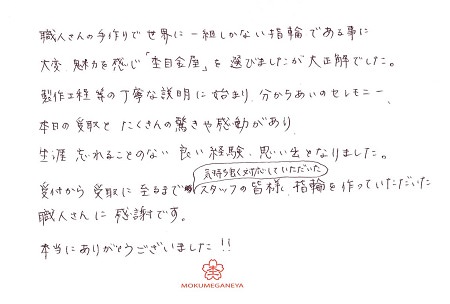 職人さんの手作りで世界に一組しかない指輪である事に
大変魅力を感じ「杢目金屋」を選びましたが大正解でした。
製作工程等の丁寧な説明に始まり、分かちあいのセレモニー、
本日の受取とたくさんの驚きや感動があり、
生涯忘れることのない良い経験、思い出となりました。
気持ち良く対応していただいた
受付から受取に至るまでスタッフの皆様、指輪を作っていただいた
職人さんに感謝です。
本当にありがとうございました!!
MOKUMEGANEYA